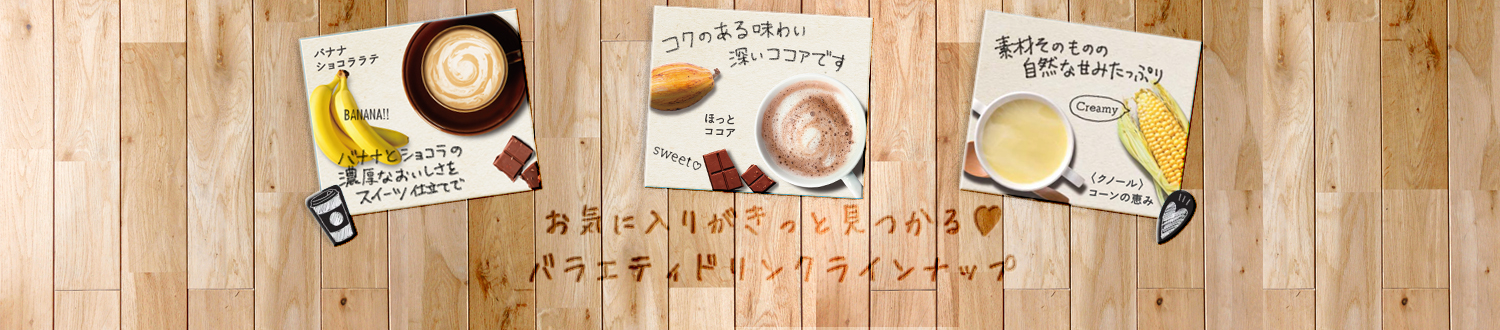 バナナ
ショコララテ
BANANA!!
バナナとショコラの
濃厚なおいしさを
スイーツ仕立てで
コクのある味わい
深いココアです
ほっと
ココア
sweet♡
素材そのものの
自然な甘みたっぷり
Creamy
〈クノール〉
コーンの恵み
お気に入りがきっと見つかる♥
バラエティドリンクラインナップ